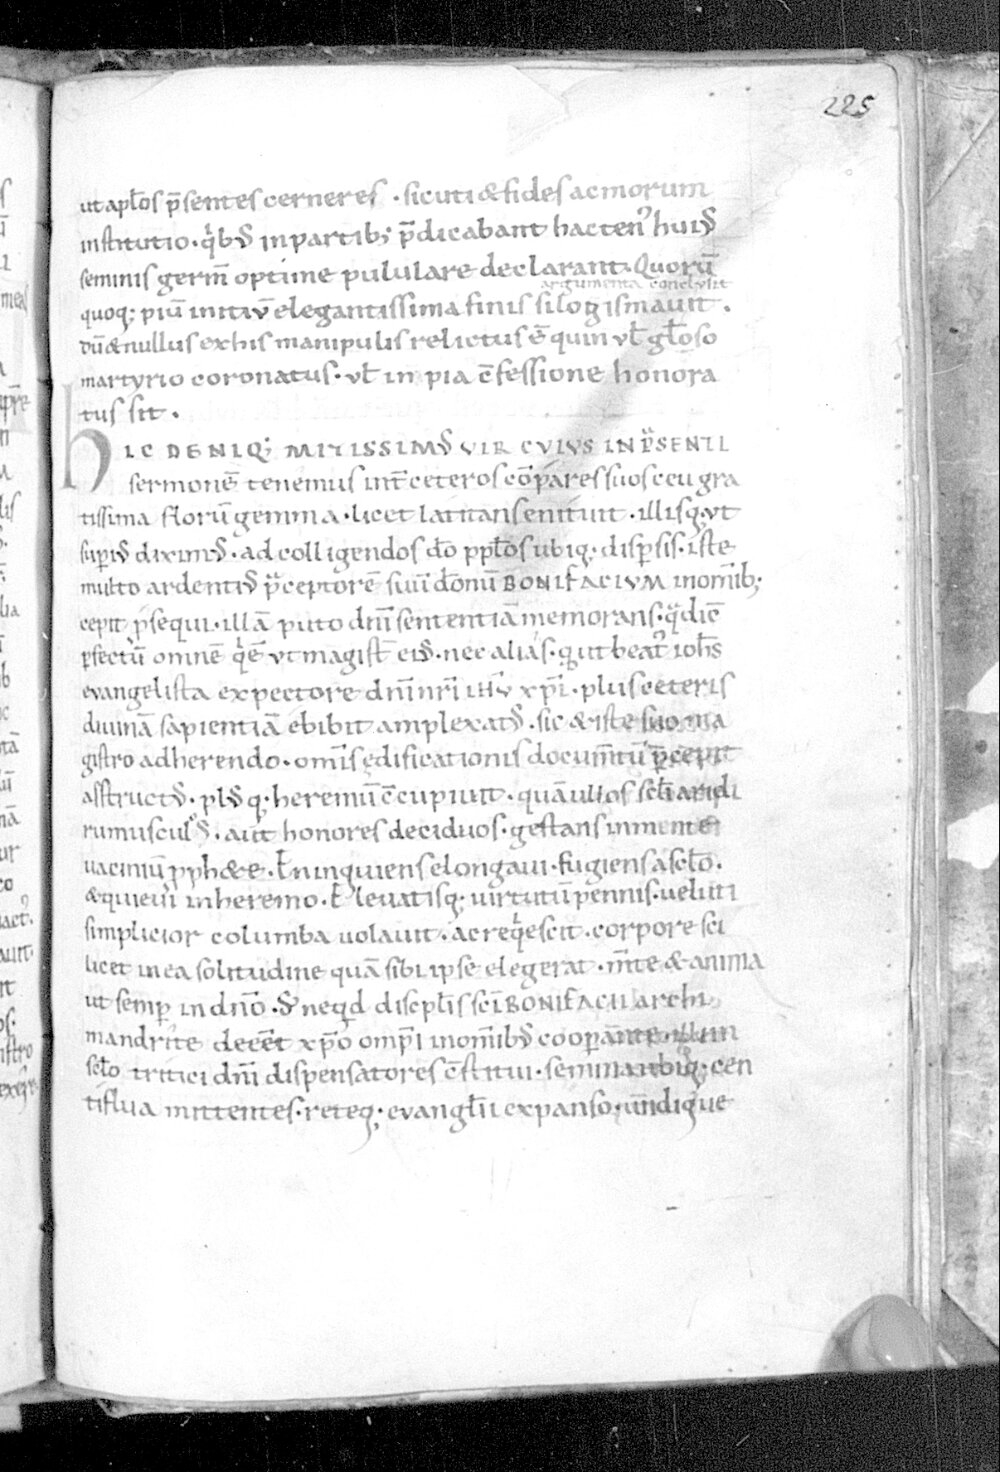 225
ut apl̅os p̅sentes cerneres · sicuti & fides ac morum
institutio · qͥbꝰ in partib; p̅dicabant hacten᾽ huiꝰ
seminis germ̅ optime pululare declarant · Quorū
argumenta conclusit
quoq; piū initiū elegantissima finis silogismauit .
dū & nullus ex his manipulis relictus ē quin ul̅ gl̅oso
martyrio coronatus · ul̅ in pia c̅fessione honora
tus sit .
HIC DENIQ; MITISSIMꝰ VIR CVIVS IN PͬSENTI
sermonē tenemus int̅ ceteros cōpares suos ceu gra
tissima florū gemma · licet latitans enituit · illisq; ut
supͥꝰ diximꝰ · ad colligendos d̅o ppl̅os ubiq; disp̲sis · iste
multo ardentiꝰ p̅ceptorē suū don̅u BONIFACIVM in om̅ib;
cepit p̲sequi · illā puto dn̅i sententiā memorans · qͣ diē
p̲fectū omnē qͥ ē ut magist̅ eiꝰ · nec aliás · q̲ ut beat᾽ ioh̅s
evangelista ex pectore dn̅i nr̅i ihu̅ xp̅i · plus ceteris
divinā sapientiā ebibit amplexatꝰ · sic & iste suo ma
gistro adherendo · om̅is ędificationis docum̅tū p̅cepit
asstructꝰ · plꝰq; heremū c̅cupiuit · quā ullos scl̅i aridi
rumusculꝰ · aut honores deciduos · gestans in mente
uaciniū p̲ph&e · E̅ninquiens elongaui · fugiens a scl̅o .
& quieui in heremo · E̅ levatisq; uirtutū pennis · ueluti
simplicior columba uolauit · ac reqͥescit · corpore sci
licet in ea solitudine quā sibi ipse elegerat · m̅te & anima
ut semp̲ in dn̅o · Sꝰ neqͥd discpl̅is sc̅i BONIFACII archi
mandrite deeēt xp̅o omp̅i in om̅ibꝰ coop̲ante · illum
scl̅o tritici dn̅i dispensatores c̅stitui · seminantbiq; cen
tiflua mittentes · reteq; evangl̅ii expanso · un̅dique